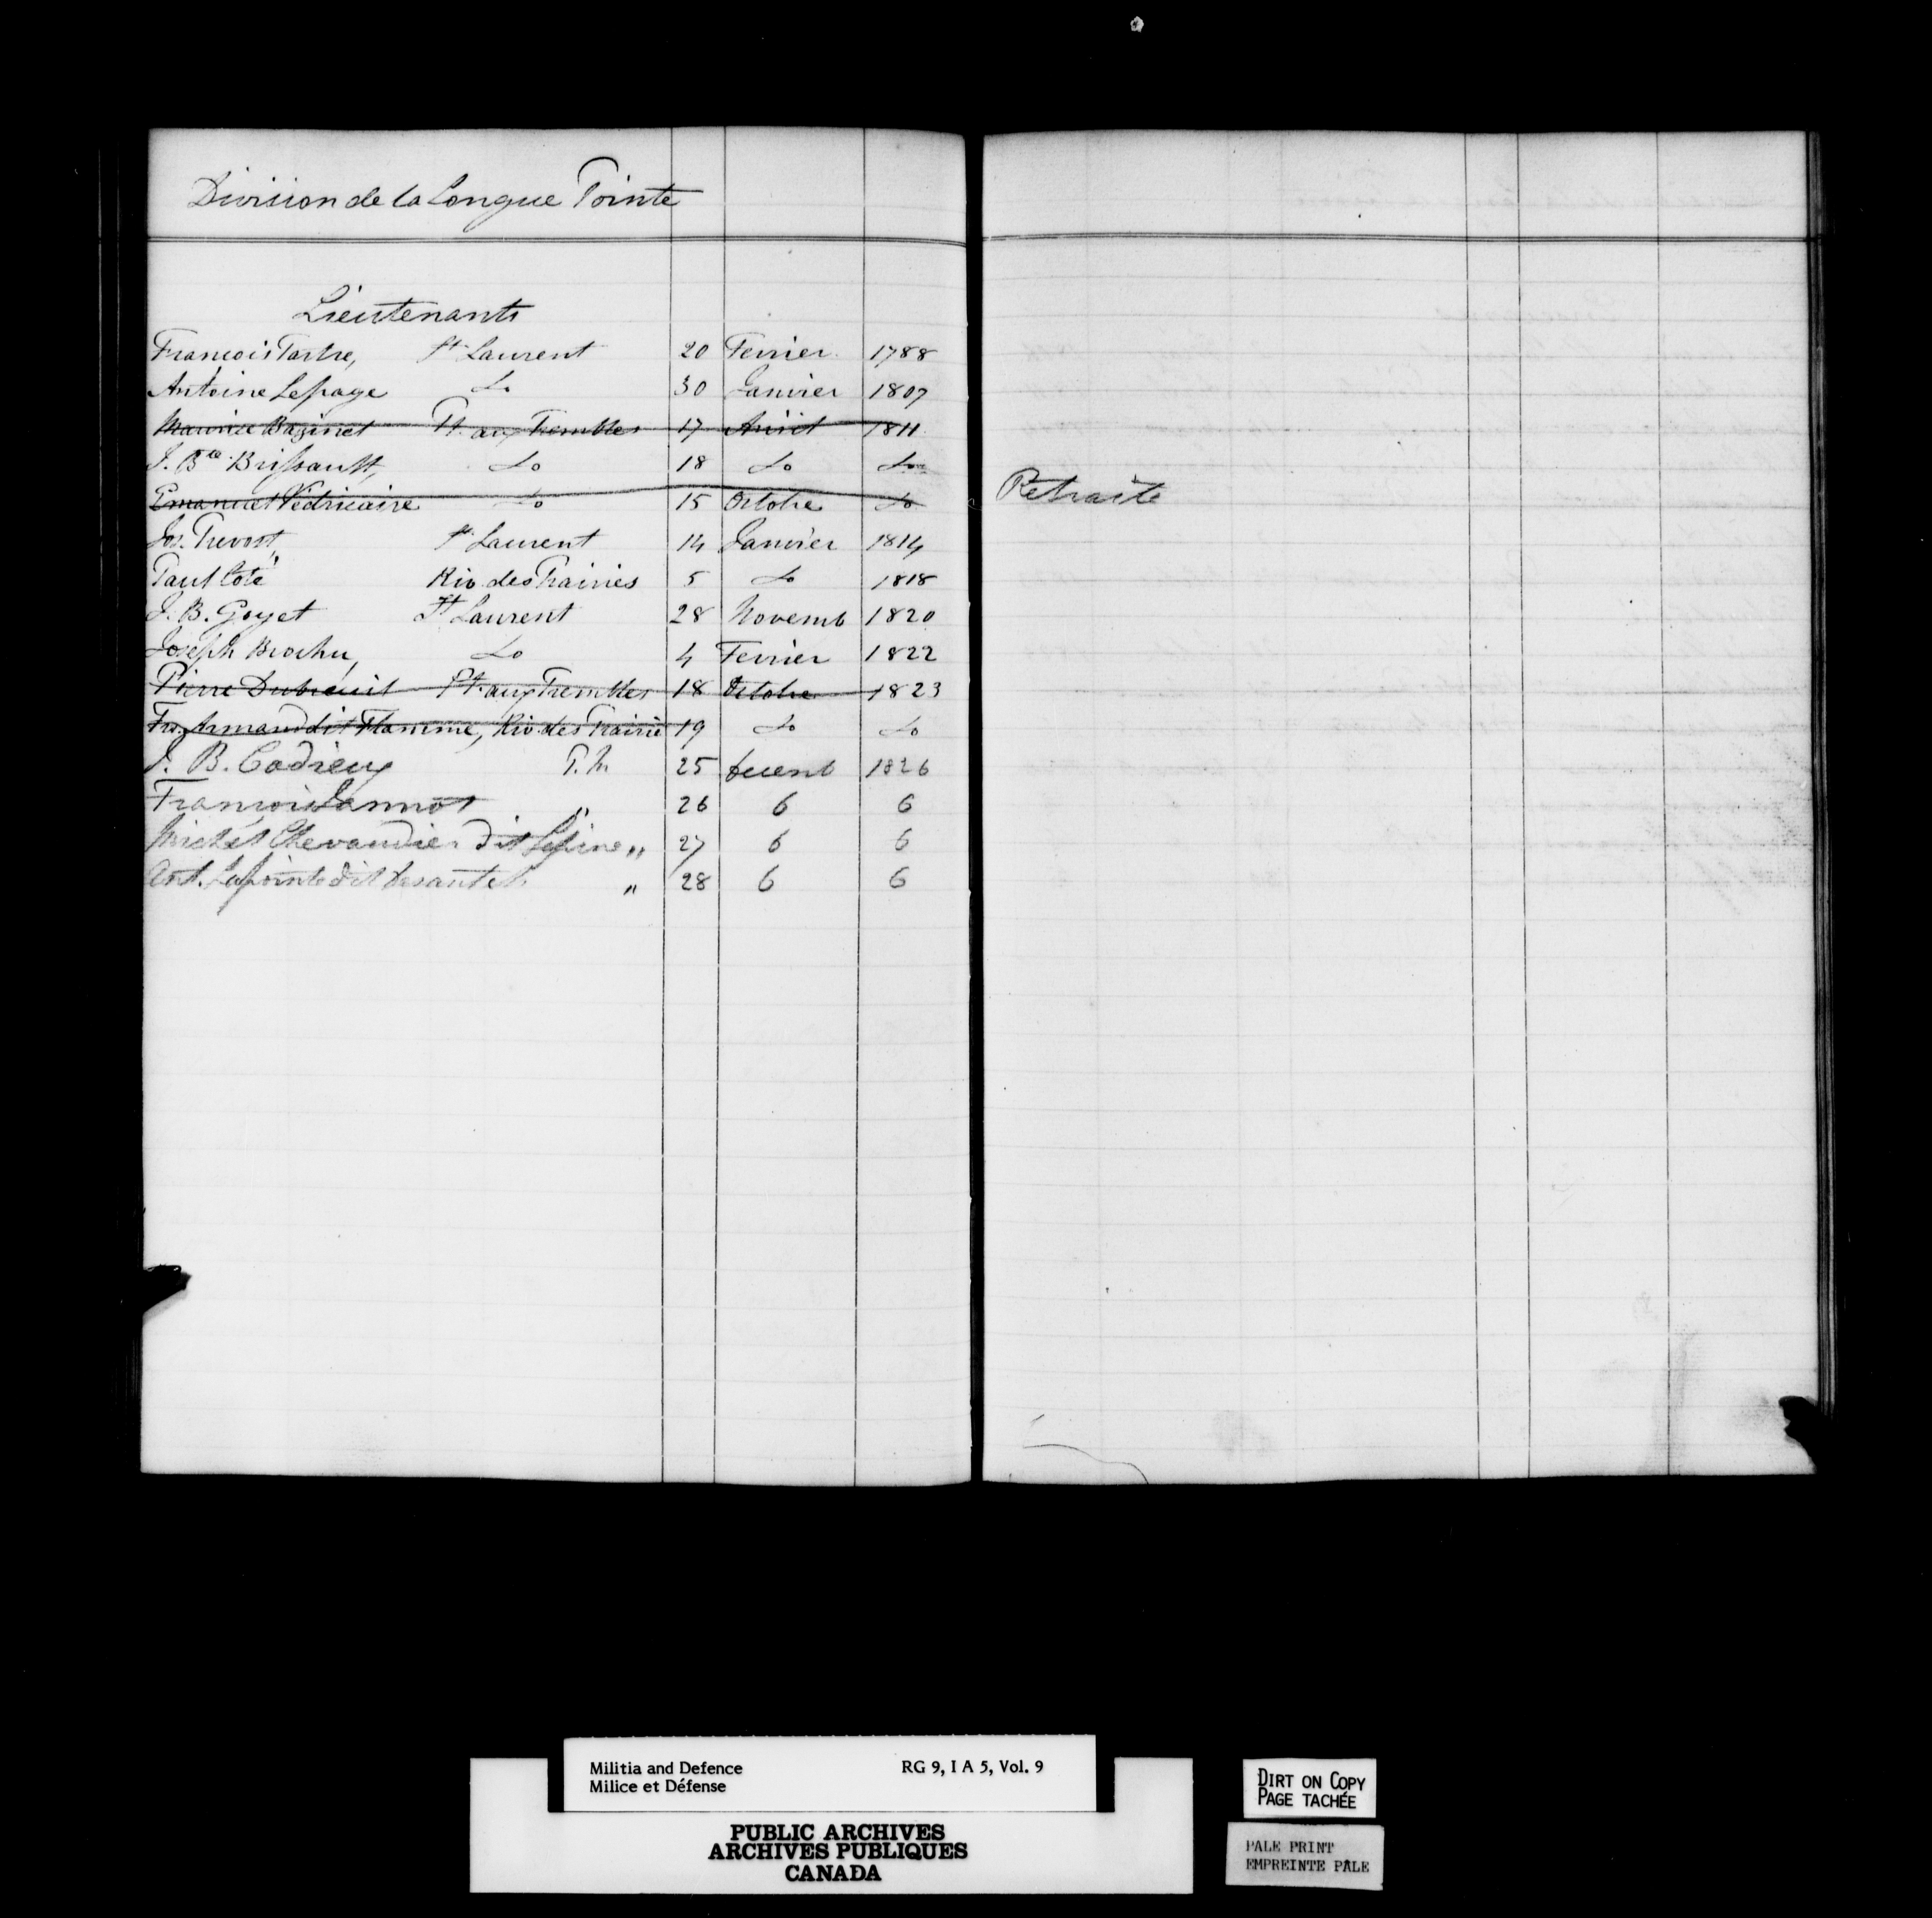 Division de la Longue Pointe
Lieutenants
François Tartre, St Laurent 20 Fevrier 1788
Antoine Lepage do 30 Janvier 1807
Maurice Bazinet Pt. aux Trembles 17 Avril 1811
J. Bte Brissault, do 18 do do
Emanuel Pédricaire do 15 Octobre do Retraite
Jos. Prevost, St Laurent 14 Janvier 1814
Paul Coté Riv. des Prairies 5 do 1818
J. B. Goyet St Laurent 28 Novemb 1820
Joseph Brochu, do 4 Fevrier 1822
Pierre Dubreuil Pt. aux Trembles 18 Octobre 1823
Frs. Armand dit Flamme, Riv. des Prairie 19 do do
J. B. Cadieux 25 decemb 1826
François " 26 6 6
Michel Chevaudier dit Lépine " 27 6 6
Ant. Lapointe dit " 28 6 6
Militia and Defence RG 9, I A 5, Vol. 9
Milice et Défense
PUBLIC ARCHIVES
ARCHIVES PUBLIQUES
CANADA
DIRT ON COPY
PAGE TACHÉE
PALE PRINT
EMPREINTE PÂLE